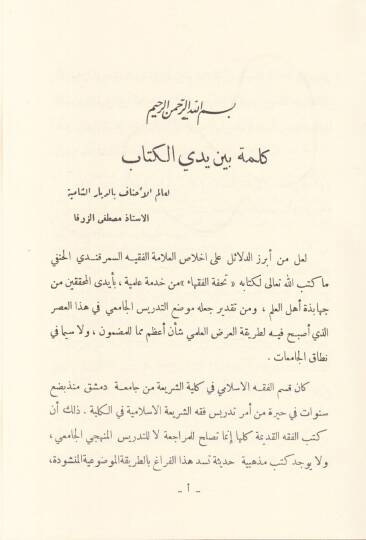 بسم الله الرحمن الرحيم
كلمة بين يدي الكتاب
لعالم الأحناف بالديار الشامية
الاستاذ مصطفى الزرقا
لعل من أبرز الدلائل على اخلاص العلامة الفقيه السمرقندي الحنفي
ما كتب الله تعالى لكتابه « تحفة الفقهاء » من خدمة علمية ، بأيدى المحققين من
جهابذة أهل العلم ، ومن تقدير جعله موضع التدريس الجامعي في هذا العصر
الذي أصبح فيه لطريقة العرض العلمي شأن أعظم مما للمضمون ، ولا سيما في
نطاق الجامعات .
كان قسم الفقه الاسلامي في كلية الشريعة من جامعة دمشق منذ بضع
سنوات في حيرة من أمر تدريس فقه الشريعة الاسلامية في الكلية . ذلك أن
كتب الفقه القديمة كلها إنما تصلح للمراجعة لا للتدريس المنهجي الجامعي ،
ولا يوجد كتب مذهبية حديثة تسد هذا الفراغ بالطريقة الموضوعية المنشودة ،
- أ -